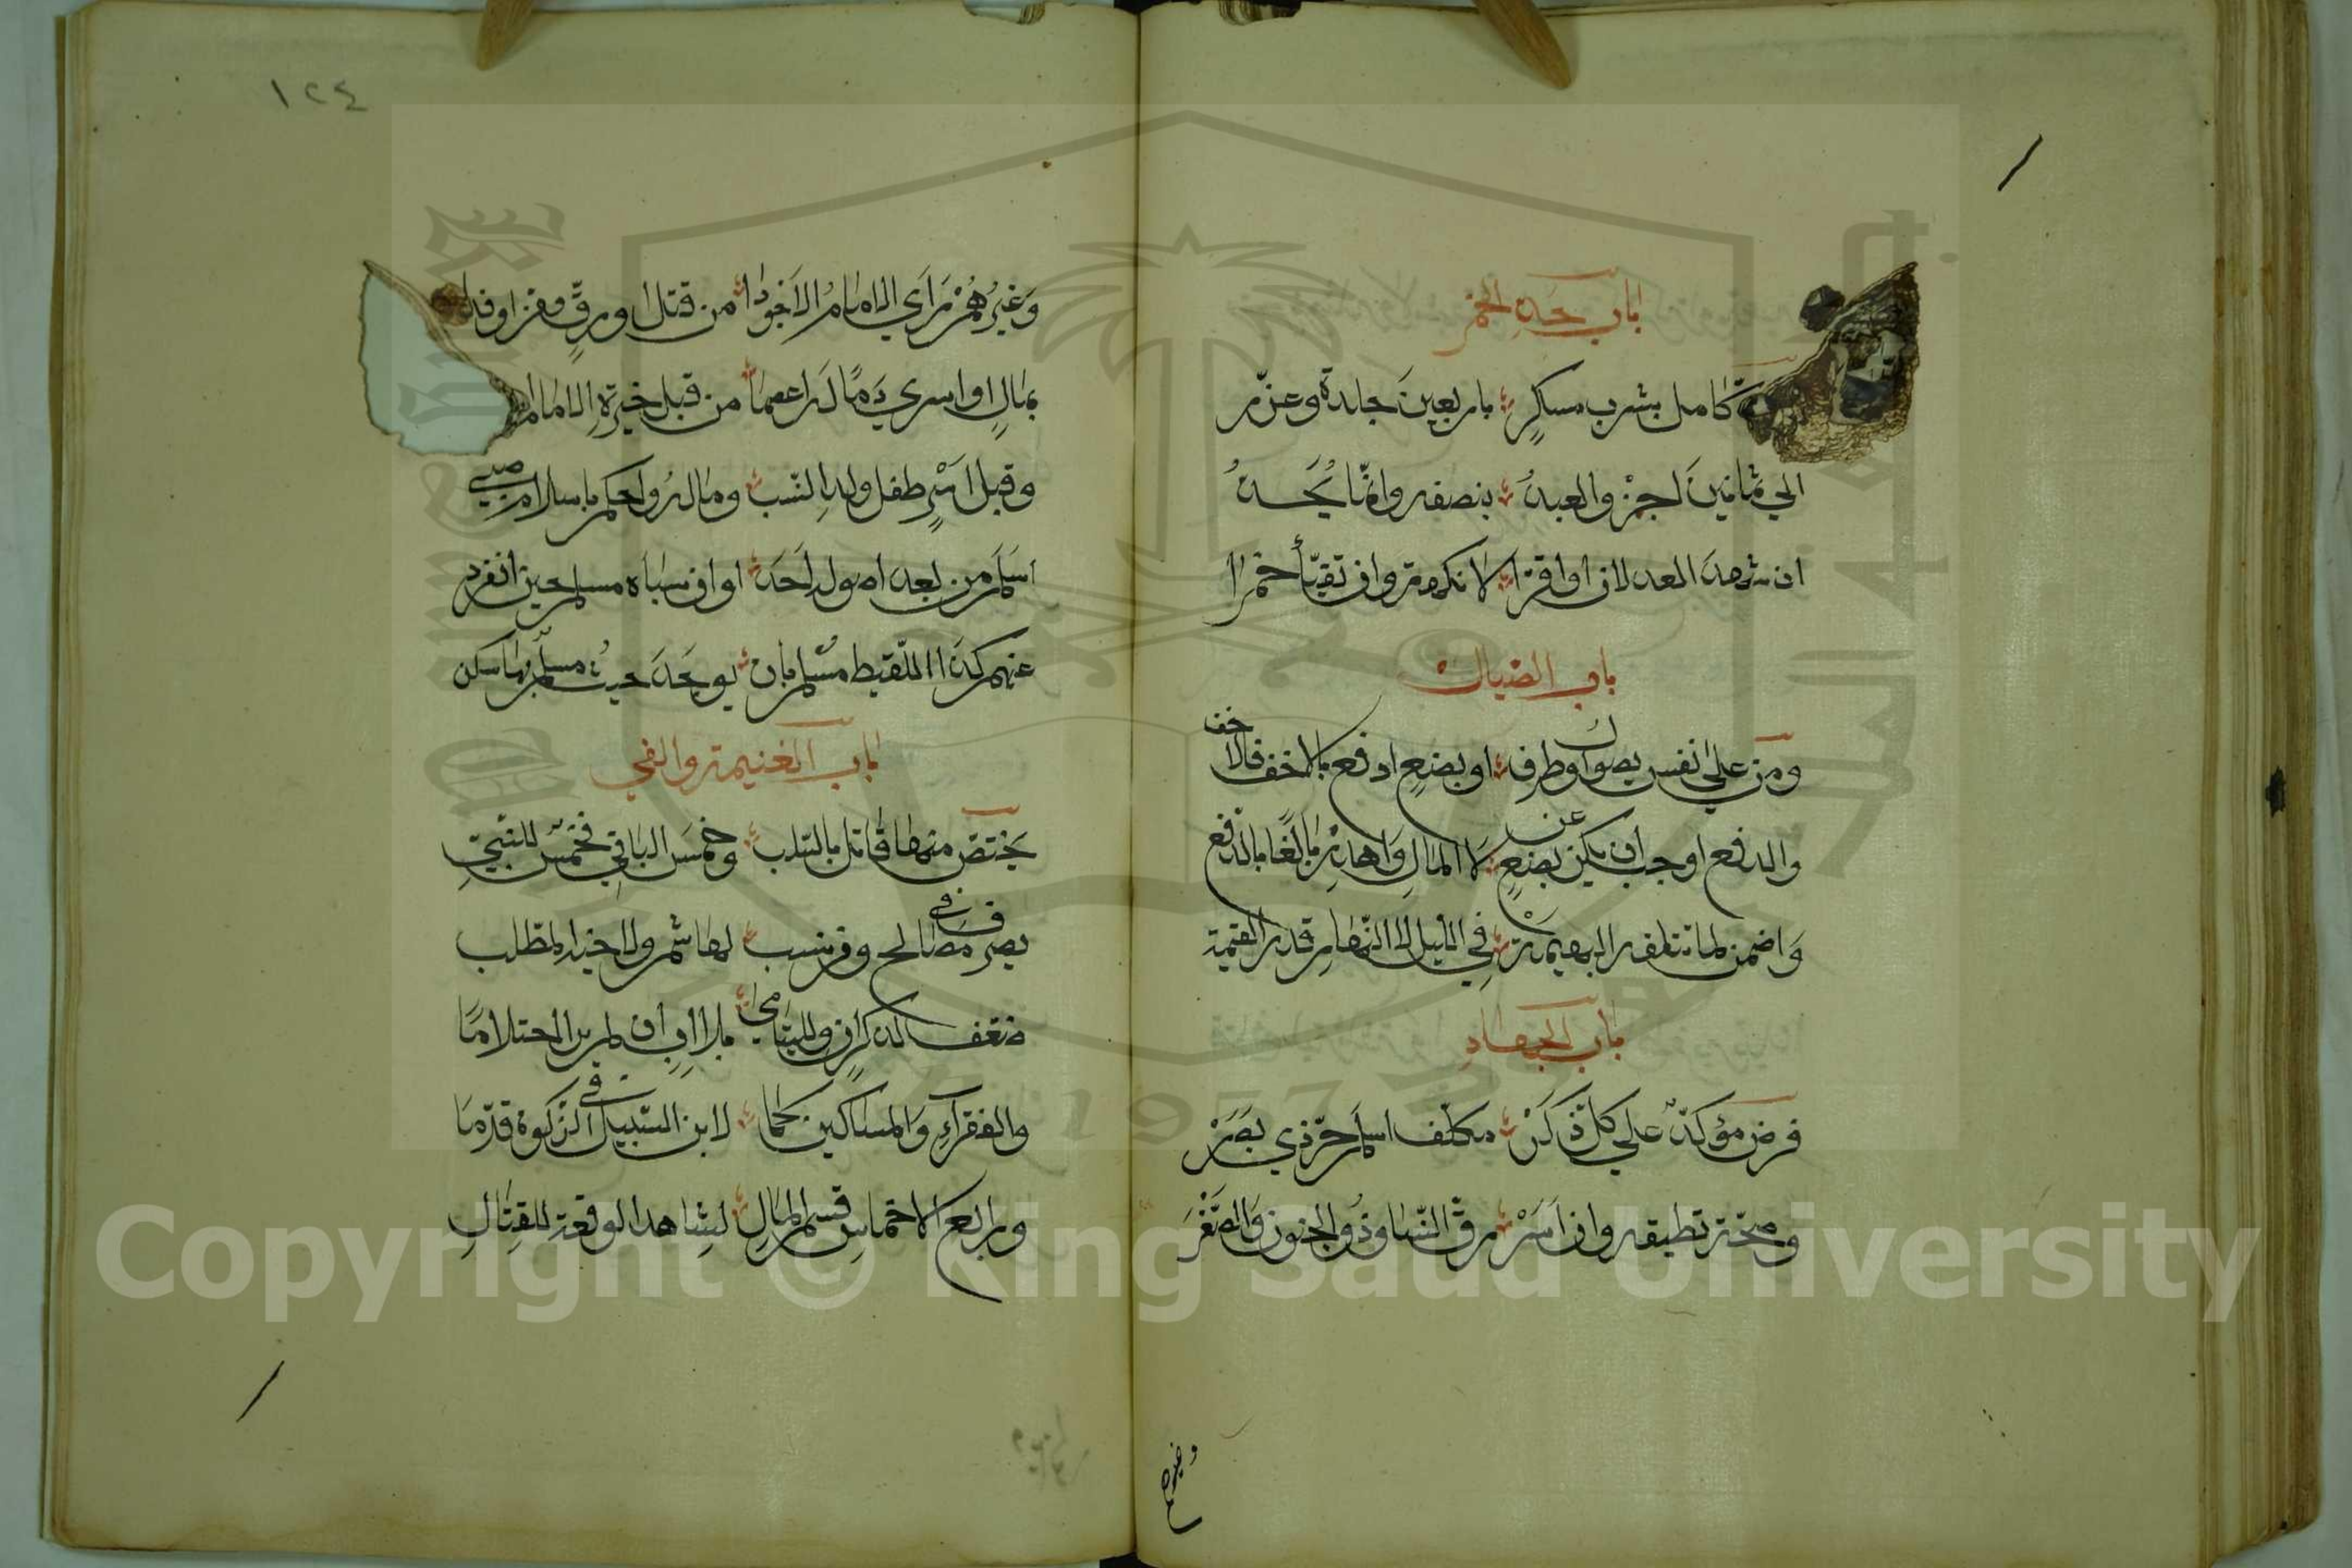 باب حد الخمر
كامل بشرب مسكر باربعين جلدة وعزر
الي ثمانين اجز والعبد بنصفه وانما يحد
ان شهد العدلان او اقرا لا نكهة وان تقيأ خمرا
باب الصيال
ومن علي نفس يصول او طرف او بضع ادفع بالاخف فالاخف
والدفع اوجب ان يكن عن بضع لا المال واهدر تالفا بالدفع
واضمن لما تتلفه البهيمة في الليل لا النهار قدر القيمة
باب الجهاد
فرض مؤكد علي كل ذكر مكلف اسلم حر ذي بصر
وصحة تطيقه وان اسر رق النسا وذو الجنون والصغر
وغيرهم
١٢٤
وغيرهم راي الامام الاجودا من قتل او رق ومن او فدا
بمال او اسري دما له اعصما من قبل خيرة الامام
وقبل اسر طفل ولد النسب وماله واحكم باسلام صبي
اسلم من بعد اصوله احد او ان سباه مسلم حين انفرد
عنهم كذا اللقيط مسلم بان يوجد حيث مسلم بها سكن
باب الغنيمة والفي
يختص منها قاتل بالسلب وخمس الباقي فخمس للنبي
يصرف في مصالح ومن نسب لهاشم ولاخيه المطلب
لذكر اضعف ولليتامى بلا اب ان لم ير احتلاما
والفقراء والمساكين كما لابن السبيل في الزكوة قدما
واربع الاخماس قسم المال لشاهد الوقعة للقتال
Copyright © King Saud University
1957